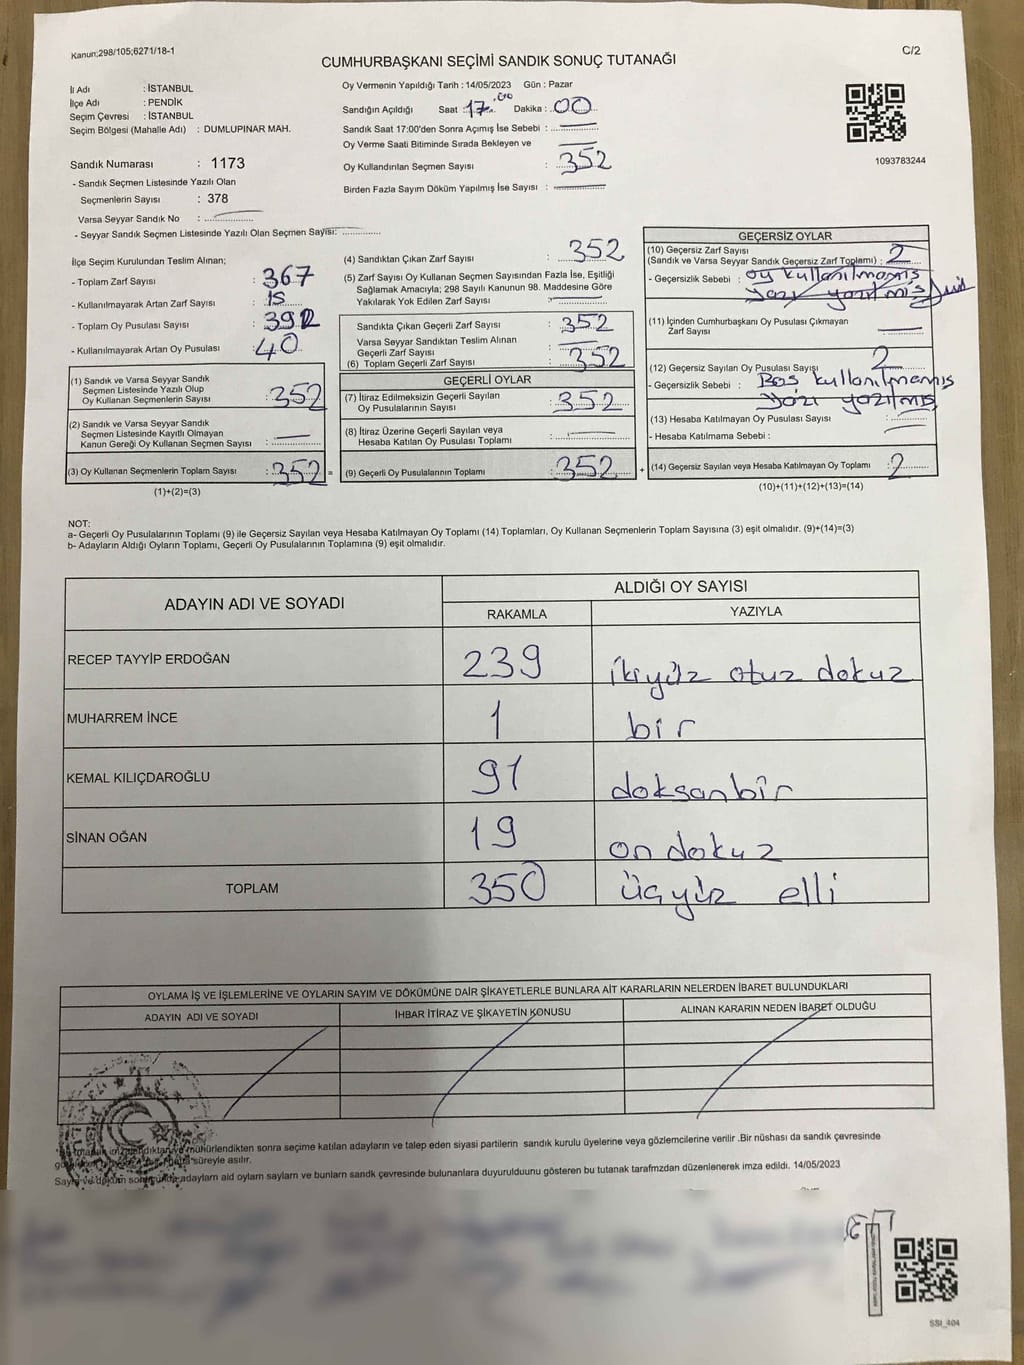 Kanun;298/105;6271/18-1
C/2
CUMHURBAŞKANI SEÇİMİ SANDIK SONUÇ TUTANAĞI
İl Adı : İSTANBUL
İlçe Adı : PENDİK
Seçim Çevresi : İSTANBUL
Seçim Bölgesi (Mahalle Adı) : DUMLUPINAR MAH.
Sandık Numarası : 1173
- Sandık Seçmen Listesinde Yazılı Olan
Seçmenlerin Sayısı : 378
Varsa Seyyar Sandık No :
- Seyyar Sandık Seçmen Listesinde Yazılı Olan Seçmen Sayısı:
Oy Vermenin Yapıldığı Tarih : 14/05/2023 Gün : Pazar
Sandığın Açıldığı Saat : 17.00 Dakika : 00
Sandık Saat 17:00'den Sonra Açımış İse Sebebi :
Oy Verme Saati Bitiminde Sırada Bekleyen ve
Oy Kullandırılan Seçmen Sayısı : 352
Birden Fazla Sayım Döküm Yapılmış İse Sayısı :
1093783244
İlçe Seçim Kurulundan Teslim Alınan;
- Toplam Zarf Sayısı : 367
- Kullanılmayarak Artan Zarf Sayısı : 15
- Toplam Oy Pusulası Sayısı : 392
- Kullanılmayarak Artan Oy Pusulası : 40
(1) Sandık ve Varsa Seyyar Sandık
Seçmen Listesinde Yazılı Olup
Oy Kullanan Seçmenlerin Sayısı : 352
(2) Sandık ve Varsa Seyyar Sandık
Seçmen Listesinde Kayıtlı Olmayan
Kanun Gereği Oy Kullanan Seçmen Sayısı :
(3) Oy Kullanan Seçmenlerin Toplam Sayısı : 352 =
(1)+(2)=(3)
(4) Sandıktan Çıkan Zarf Sayısı : 352
(5) Zarf Sayısı Oy Kullanan Seçmen Sayısından Fazla İse, Eşitliği
Sağlamak Amacıyla; 298 Sayılı Kanunun 98. Maddesine Göre
Yakılarak Yok Edilen Zarf Sayısı :
Sandıkta Çıkan Geçerli Zarf Sayısı : 352
Varsa Seyyar Sandıktan Teslim Alınan
Geçerli Zarf Sayısı :
(6) Toplam Geçerli Zarf Sayısı : 352
GEÇERLİ OYLAR
(7) İtiraz Edilmeksizin Geçerli Sayılan
Oy Pusulalarının Sayısı : 352
(8) İtiraz Üzerine Geçerli Sayılan veya
Hesaba Katılan Oy Pusulası Toplamı :
(9) Geçerli Oy Pusulalarının Toplamı : 352 +
GEÇERSİZ OYLAR
(10) Geçersiz Zarf Sayısı
(Sandık ve Varsa Seyyar Sandık Geçersiz Zarf Toplamı) : 2
- Geçersizlik Sebebi : Oy kullanılmamış
yazı yazılmış
(11) İçinden Cumhurbaşkanı Oy Pusulası Çıkmayan
Zarf Sayısı :
(12) Geçersiz Sayılan Oy Pusulası Sayısı : 2
- Geçersizlik Sebebi : Boş kullanılmamış
yazı yazılmış
(13) Hesaba Katılmayan Oy Pusulası Sayısı :
- Hesaba Katılmama Sebebi :
(14) Geçersiz Sayılan veya Hesaba Katılmayan Oy Toplamı : 2
(10)+(11)+(12)+(13)=(14)
NOT:
a- Geçerli Oy Pusulalarının Toplamı (9) ile Geçersiz Sayılan veya Hesaba Katılmayan Oy Toplamı (14) Toplamları, Oy Kullanan Seçmenlerin Toplam Sayısına (3) eşit olmalıdır. (9)+(14)=(3)
b- Adayların Aldığı Oyların Toplamı, Geçerli Oy Pusulalarının Toplamına (9) eşit olmalıdır.
ADAYIN ADI VE SOYADI
ALDIĞI OY SAYISI
RAKAMLA YAZIYLA
RECEP TAYYİP ERDOĞAN 239 ikiyüz otuz dokuz
MUHARREM İNCE 1 bir
KEMAL KILIÇDAROĞLU 91 doksanbir
SİNAN OĞAN 19 on dokuz
TOPLAM 350 üçyüz elli
OYLAMA İŞ VE İŞLEMLERİNE VE OYLARIN SAYIM VE DÖKÜMÜNE DAİR ŞİKAYETLERLE BUNLARA AİT KARARLARIN NELERDEN İBARET BULUNDUKLARI
ADAYIN ADI VE SOYADI İHBAR İTİRAZ VE ŞİKAYETİN KONUSU ALINAN KARARIN NEDEN İBARET OLDUĞU
mühürlendikten sonra seçime katılan adayların ve talep eden siyasi partilerin sandık kurulu üyelerine veya gözlemcilerine verilir .Bir nüshası da sandık çevresinde
süreyle asılır.
Sayım ve döküm sonucunda adayların aid oyların sayların ve bunların sandk çevresinde bulunanlara duyurulduunu gösteren bu tutanak tarafmzdan düzenlenerek imza edildi. 14/05/2023
SSI_404